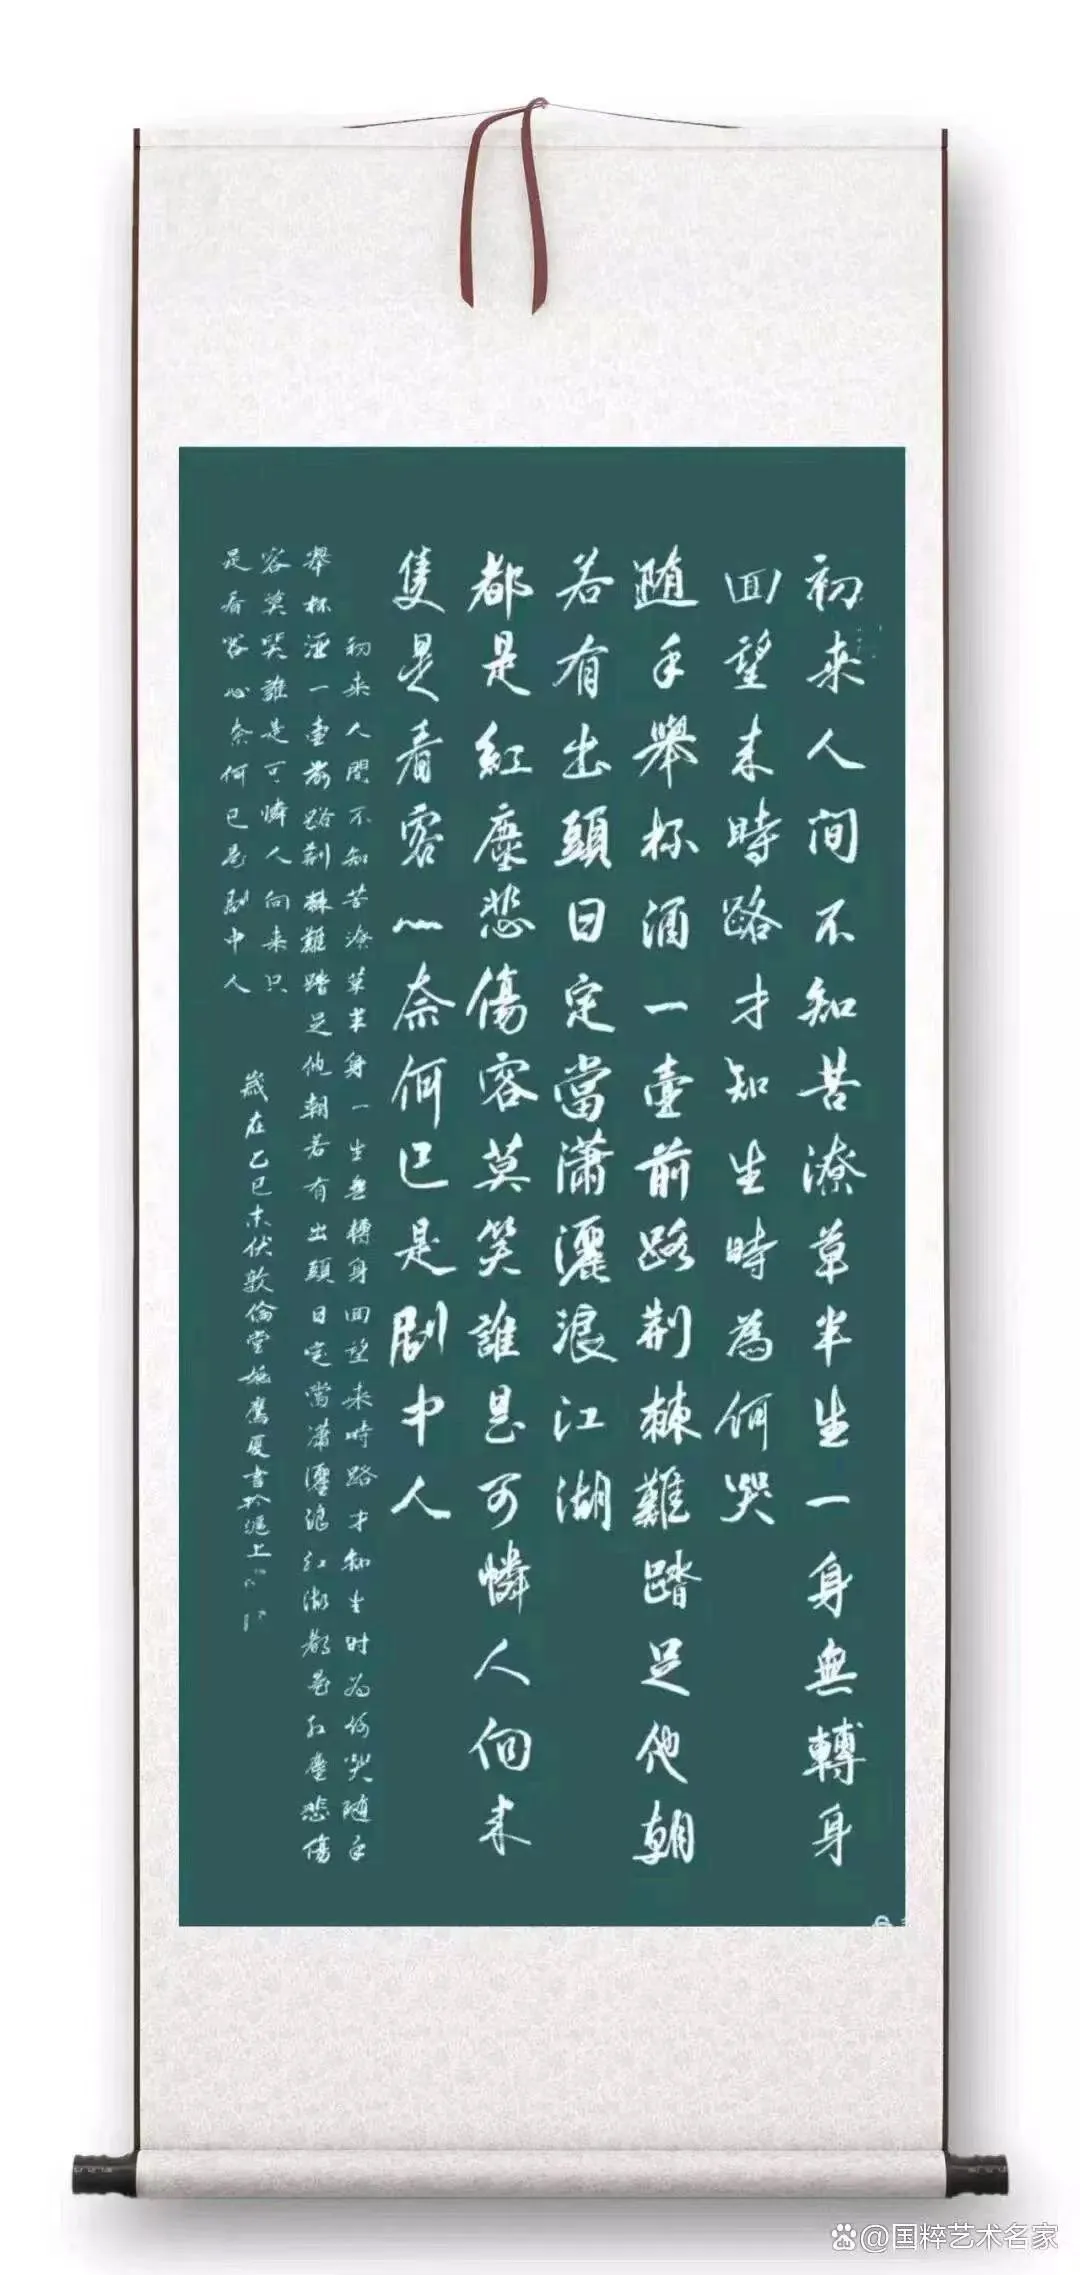 初来人间不知苦潦草半生一身無轉身
回望来時路才知生時為何哭
随手舉杯酒一壺前路荆棘難踏足他朝
若有出頭日定當瀟灑浪江湖
都是紅塵悲傷客莫笑誰是可憐人向来
隻是看客心奈何已是劇中人
初来人間不知苦潦草半身一生無轉身回望来時路才知生时為何哭随手
舉杯酒一壺前路荆棘難踏足他朝若有出頭日定當瀟灑浪江湖都是红塵悲傷
客莫哭誰是可憐人向来只
是看客心奈何已是劇中人
歲在乙巳末伏敦倫堂施鹰厦書於滬上
@国粹艺术名家